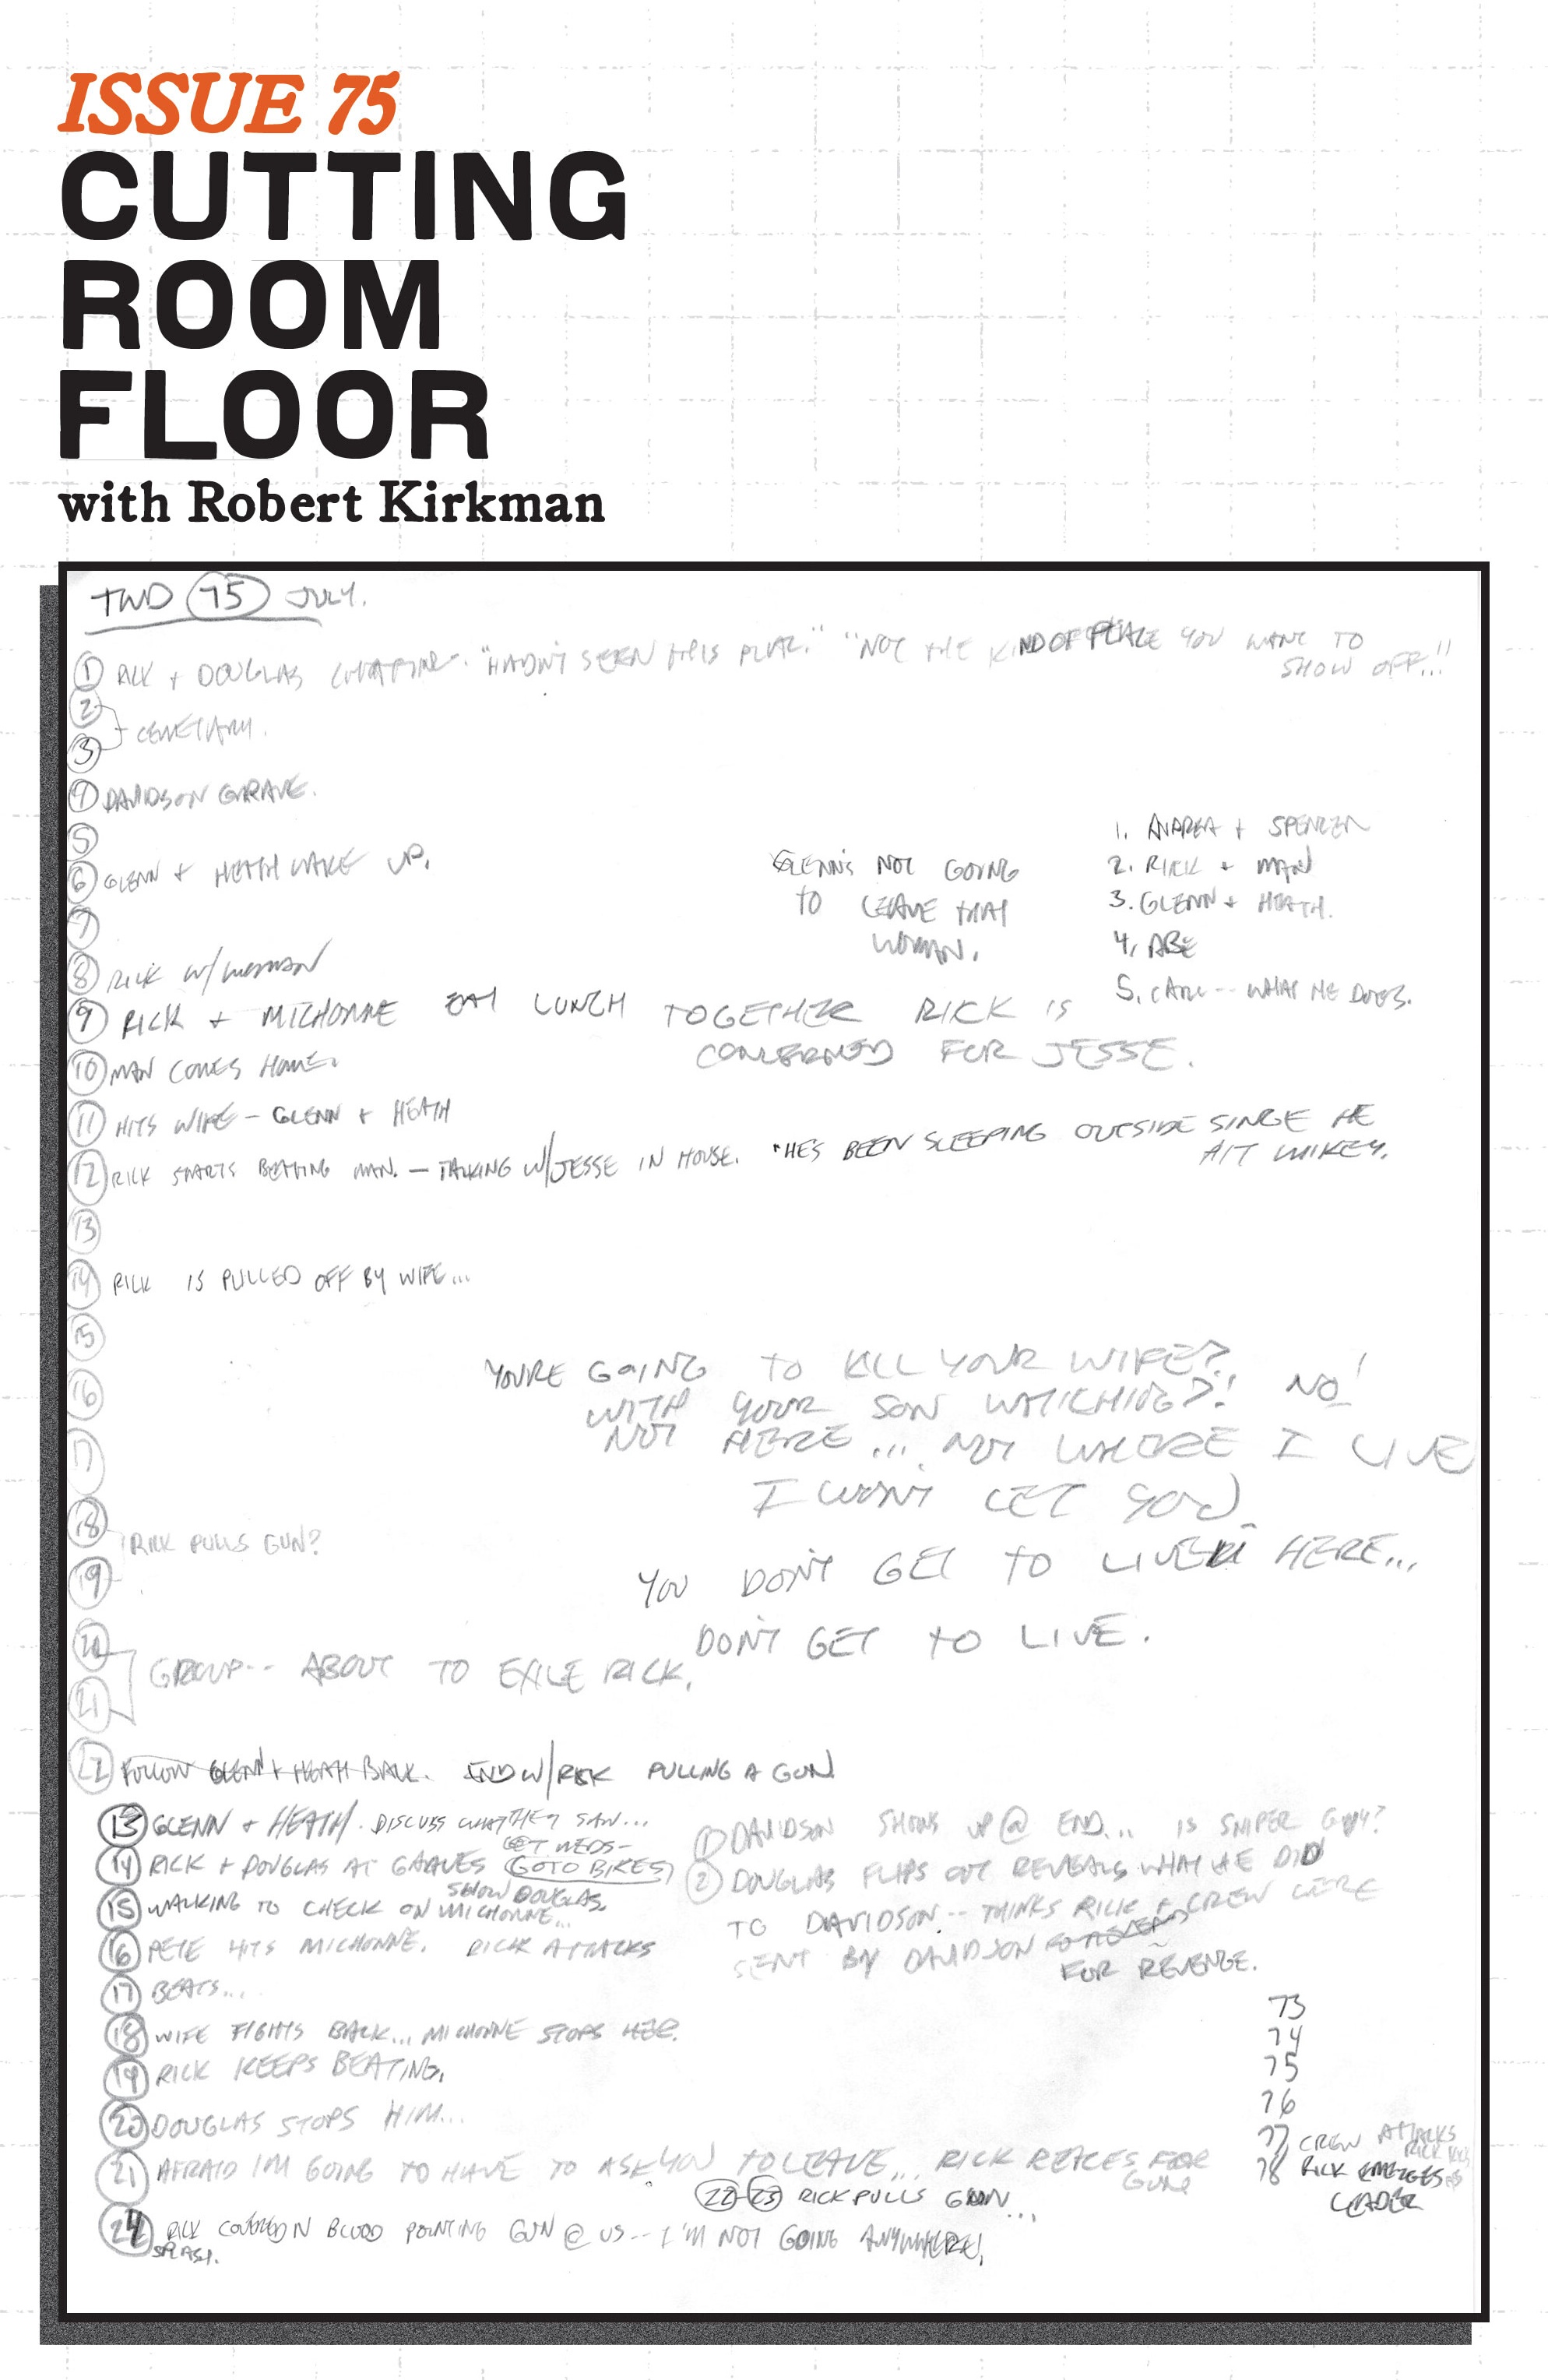 ISSUE 75
CUTTING
ROOM
FLOOR
with Robert Kirkman
TWD 75 JULY.
1 RICK + DOUGLAS "HADN'T SEEN THIS PLACE." "NOT THE KIND OF PLACE YOU WANT TO
SHOW OFF..."
2
3 CEMETARY.
4 DAVIDSON GRAVE.
5
6 GLENN + HEATH WAKE UP.
7
8 RICK W/ WOMAN
GLENN'S NOT GOING
TO LEAVE THAT
WOMAN.
1. ANDREA + SPENCER
2. RICK + MAN
3. GLENN + HEATH.
4. ABE
5. CARL -- WHAT HE DOES.
9 RICK + MICHONNE EAT LUNCH TOGETHER RICK IS
CONCERNED FOR JESSE.
10 MAN COMES HOME.
11 HITS WIFE - GLENN + HEATH
12 RICK STARTS BEATING MAN. - TALKING W/JESSE IN HOUSE. "HE'S BEEN SLEEPING OUTSIDE SINCE HE
HIT MIKEY.
13
14 RICK IS PULLED OFF BY WIFE...
15
16
17
YOU'RE GOING TO KILL YOUR WIFE?
WITH YOUR SON WATCHING?! NO!
NOT HERE... NOT WHERE I LIVE
I WON'T LET YOU.
18
19 RICK PULLS GUN?
YOU DON'T GET TO LIVE HERE...
DON'T GET TO LIVE.
20
21 GROUP -- ABOUT TO EXILE RICK.
22 FOLLOW GLENN + HEATH BACK. END W/RICK PULLING A GUN
13 GLENN + HEATH. DISCUSS WHAT THEY SAW...
GET MEDS -
14 RICK + DOUGLAS AT GRAVES GOTO BIKES
SHOW DOUGLAS.
15 WALKING TO CHECK ON MICHONNE...
16 PETE HITS MICHONNE. RICK ATTACKS
17 BEATS...
18 WIFE FIGHTS BACK... MICHONNE STOPS HER.
19 RICK KEEPS BEATING.
20 DOUGLAS STOPS HIM...
21 AFRAID I'M GOING TO HAVE TO ASK YOU TO LEAVE... RICK FOR
GUN
22 23 RICK PULLS GUN...
24 RICK COVERED IN BLOOD POINTING GUN @ US -- I'M NOT GOING ANYWHERE!
SPLASH.
1 DAVIDSON SHOWS UP @ END... IS SNIPER GUY?
2 DOUGLAS FLIPS OUT REVEALS WHAT HE DID
TO DAVIDSON -- THINKS RICK + CREW WERE
SENT BY DAVIDSON
FOR REVENGE.
73
74
75
76
77 CREW ATTACKS
78 RICK EMERGES AS
LEADER